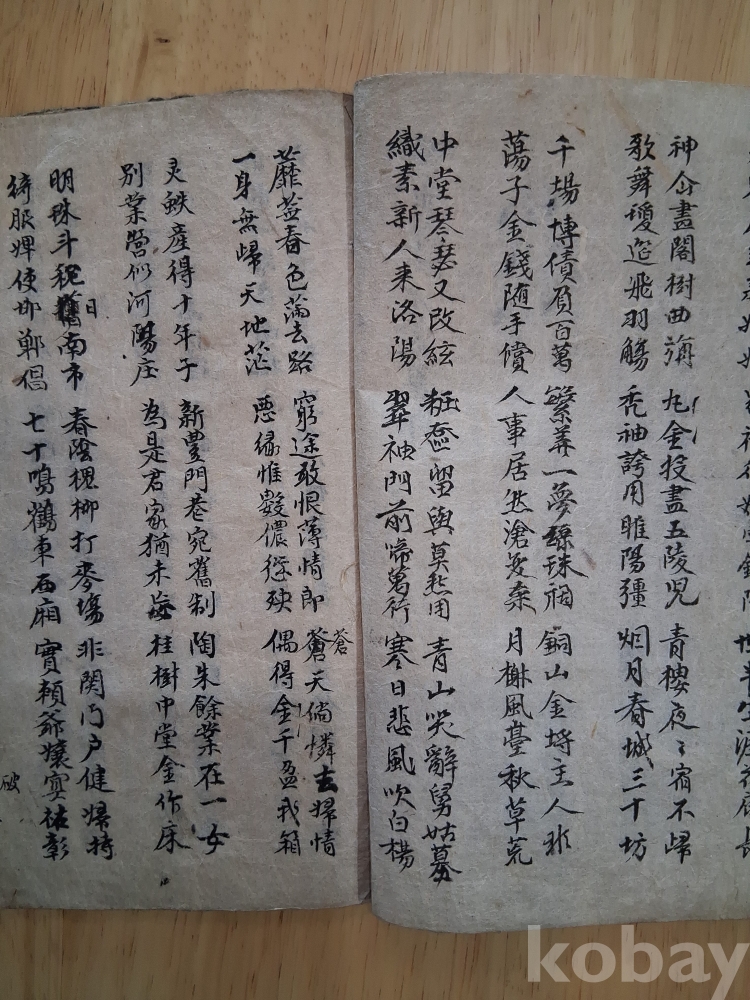 神仚畫閣樹曲旃 九金投盡五陵兒 青樓夜〻宿不歸
歌舞瓊筵飛羽觴 禿袖誇用睢陽彊 烟月春城三十坊
千場博債負百萬 繁華一夢 珠 銅山金埒主人非
蕩子金錢随手償 人事居然滄 桒 月榭風臺秋草荒
中堂琴瑟又改絃 粧奩留與莫愁用 青山哭辭舅姑墓
織素新人来洛陽 翠袖門前啼萬行 寒日悲風吹白楊
蘼蕪春色滿去路 窮途敢恨薄情郎 蒼天倘憐去婦情
蒼
一身無歸天地茫 惟數儂 殃 偶得金千盈我箱
灵 産得十年子 新豊門巷宛舊制 陶朱餘業在一女
別業營似河陽庄 為是君家猶未 桂樹中堂金作床
明珠斗税 南市 春陰槐柳打麥塲 非関门户健婦持
日
綺服婢使邯鄲倡 七十鳴鶴東西廂 實賴爺孃冥佑彰
破
kobay